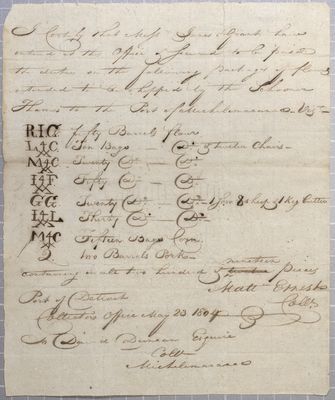 I Certify that Messrs
entered at the Office & Secured to be paid
the duties on the following packages of
intended to be shipped by the Schooner
Thames to the Port of Michilimackinac Viz
RIG fifty Barrels flour
L+C. Ten Bags — Do. & twelve Chairs —
M+C Twenty Do — Do.
I+F Fifty Do — Do.
GG. Twenty Do. — Do. 1 & 1 Keg Butter
H+L Thirty Do — Do.
M+C Fifteen Bags Corn
2 two Barrels Pork —
containing in all two hundred & nineteen pieces
Matt Ernest
Collr.
Port of Detroit
Collectors Office May 23 1804
To David Duncan Esquire
Collr
Michilimackinac